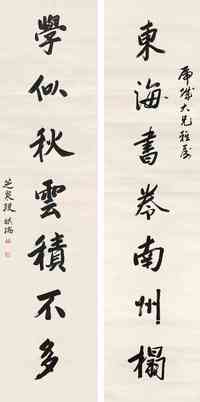 大兄雅屬
東海書卷南州榻
學似秋雲積不多
芝泉段祺瑞